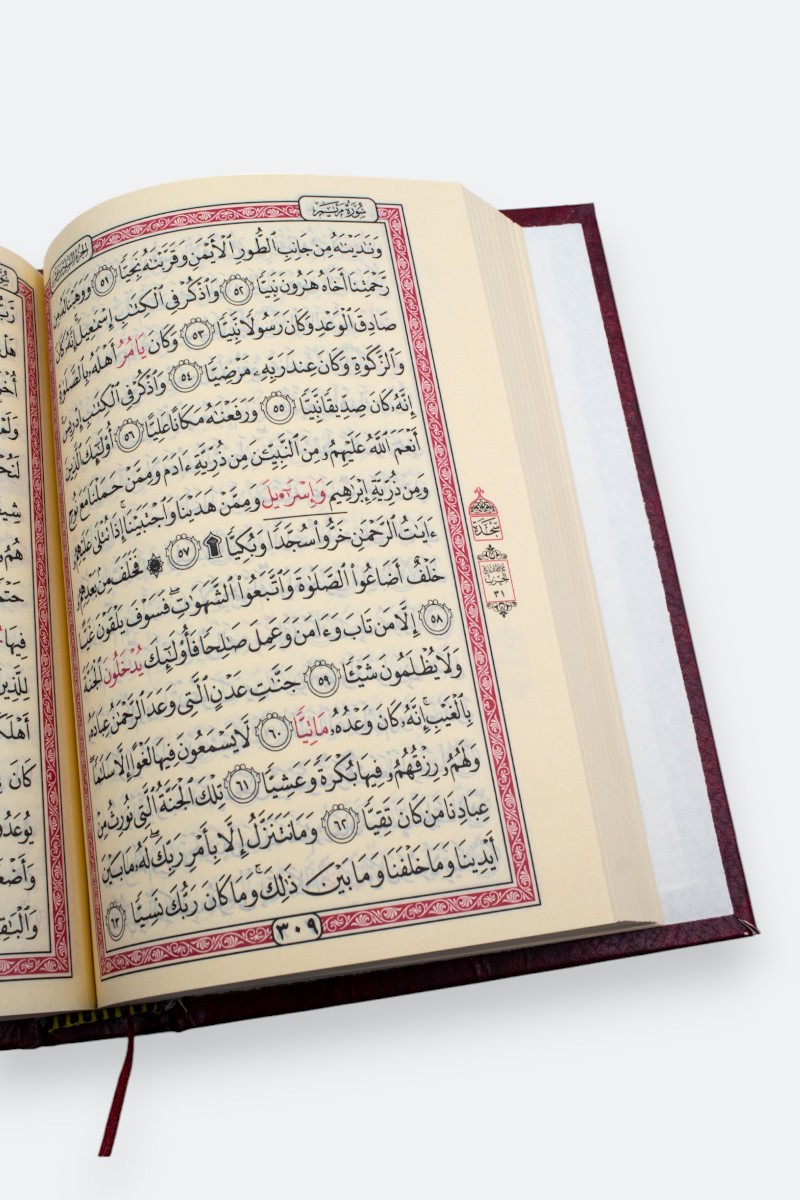 سُورَةُ مَرْيَمَ
وَنَٰدَيْنَٰهُ مِن جَانِبِ ٱلطُّورِ ٱلْأَيْمَنِ وَقَرَّبْنَٰهُ نَجِيًّا ٥١ وَوَهَبْنَا لَهُۥ مِن
رَّحْمَتِنَا أَخَاهُ هَٰرُونَ نَبِيًّا ٥٢ وَٱذْكُرْ فِي ٱلْكِتَٰبِ إِسْمَٰعِيلَ إِنَّهُۥ كَانَ
صَادِقَ ٱلْوَعْدِ وَكَانَ رَسُولًا نَّبِيًّا ٥٣ وَكَانَ يَامُرُ أَهْلَهُۥ بِٱلصَّلَوٰةِ
وَٱلزَّكَوٰةِ وَكَانَ عِندَ رَبِّهِۦ مَرْضِيًّا ٥٤ وَٱذْكُرْ فِي ٱلْكِتَٰبِ إِدْرِيسَ
إِنَّهُۥ كَانَ صِدِّيقًا نَّبِيًّا ٥٥ وَرَفَعْنَٰهُ مَكَانًا عَلِيًّا ٥٦ أُوْلَٰٓئِكَ ٱلَّذِينَ
أَنْعَمَ ٱللَّهُ عَلَيْهِمُۥ مِنَ ٱلنَّبِيِّـۧنَ مِن ذُرِّيَّةِ ءَادَمَ وَمِمَّنْ حَمَلْنَا مَعَ نُوحٍ
وَمِن ذُرِّيَّةِ إِبْرَٰهِيمَ وَإِسْرَٰٓءِيلَ وَمِمَّنْ هَدَيْنَا وَٱجْتَبَيْنَا إِذَا تُتْلَىٰ عَلَيْهِمُۥ
ءَايَٰتُ ٱلرَّحْمَٰنِ خَرُّواْ سُجَّدًا وَبُكِيًّا ۩ ٥٧ ۞ فَخَلَفَ مِنۢ بَعْدِهِمُۥ
خَلْفٌ أَضَاعُواْ ٱلصَّلَوٰةَ وَٱتَّبَعُواْ ٱلشَّهَوَٰتِ فَسَوْفَ يَلْقَوْنَ غَيًّا
٥٨ إِلَّا مَن تَابَ وَءَامَنَ وَعَمِلَ صَٰلِحًا فَأُوْلَٰٓئِكَ يُدْخَلُونَ ٱلْجَنَّةَ
وَلَا يُظْلَمُونَ شَيْـًٔا ٥٩ جَنَّٰتِ عَدْنٍ ٱلَّتِي وَعَدَ ٱلرَّحْمَٰنُ عِبَادَهُۥ
بِٱلْغَيْبِ إِنَّهُۥ كَانَ وَعْدُهُۥ مَاتِيًّا ٦٠ لَا يَسْمَعُونَ فِيهَا لَغْوًا إِلَّا سَلَٰمًا
وَلَهُمُۥ رِزْقُهُمُۥ فِيهَا بُكْرَةً وَعَشِيًّا ٦١ تِلْكَ ٱلْجَنَّةُ ٱلَّتِي نُورِثُ مِنْ
عِبَادِنَا مَن كَانَ تَقِيًّا ٦٢ وَمَا نَتَنَزَّلُ إِلَّا بِأَمْرِ رَبِّكَ لَهُۥ مَا بَيْنَ
أَيْدِينَا وَمَا خَلْفَنَا وَمَا بَيْنَ ذَٰلِكَ وَمَا كَانَ رَبُّكَ نَسِيًّا ٦٣
٣٠٩
سَجْدَة
حِزْب
٣١